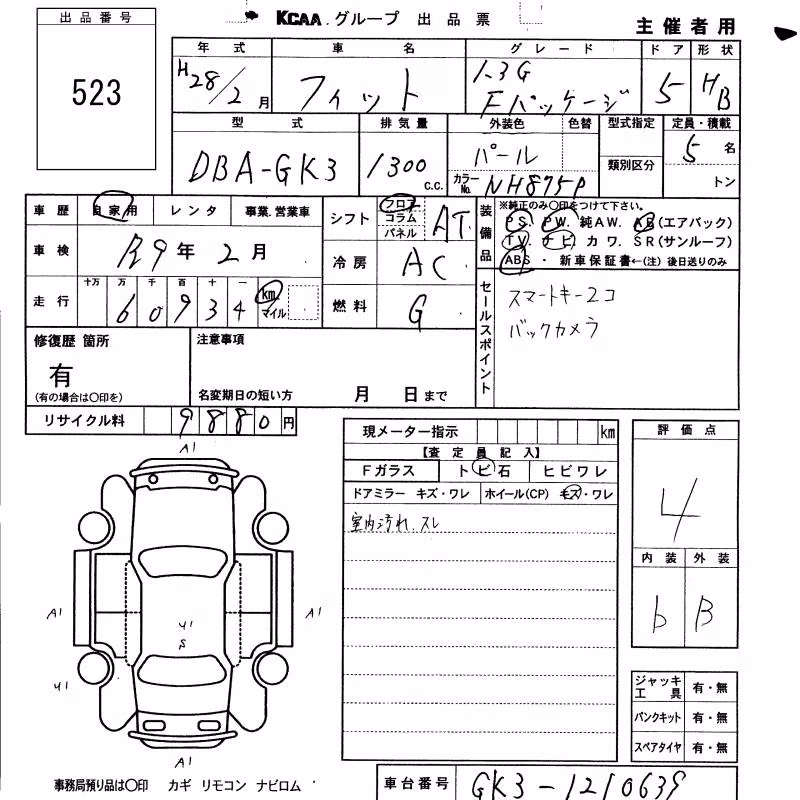 出品番号
523
KCAA.グループ 出品票
主催者用
年式 車名 グレード ドア 形状
H28/2月 フィット 1.3G Fパッケージ 5 HB
型式 排気量 外装色 色替 型式指定 定員・積載
DBA-GK3 1300 c.c. パール 類別区分 5名
カラーNo. NH875P トン
車歴 自家用 レンタ 事業.営業車
シフト フロア コラム パネル AT
装備品 ※純正のみ〇印をつけて下さい。
PS. PW. 純AW. AB(エアバック)
TV. ナビ カワ. SR(サンルーフ)
ABS ・ 新車保証書←(注)後日送りのみ
車検 R9年 2月
冷房 AC
走行 十万 万 千 百 十 一
60934 km マイル
燃料 G
セールスポイント
スマートキー2コ
バックカメラ
修復歴 箇所
有
(有の場合は〇印を)
注意事項
名変期日の短い方 月 日まで
リサイクル料 9880円
現メーター指示 km
【査定員記入】
Fガラス トビ石 ヒビワレ
ドアミラー キズ・ワレ ホイール(CP) キズ・ワレ
室内汚れ、スレ
評価点
4
内装 外装
b B
A1
A1
A1
U1
S
U1
A1
ジャッキ工具 有・無
パンクキット 有・無
スペアタイヤ 有・無
事務局預り品は〇印 カギ リモコン ナビロム
車台番号 GK3-1210639